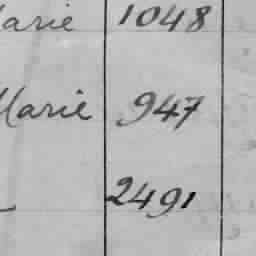 arie 1048
Marie 947
2491